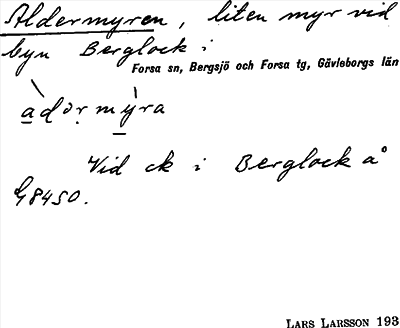 Aldermyren, liten myr vid
byn Berglock i
Forsa sn, Bergsjö och Forsa tg, Gävleborgs län
àdər mỳra
Vid ck i Berglock å
G8450.
LARS LARSSON 193